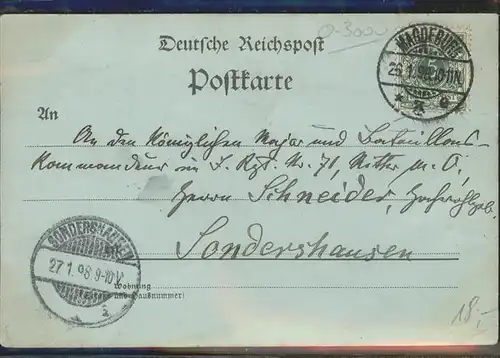 0-3000
Deutsche Reichspost
Postkarte
MAGDEBURG
26.1.98.10-11N.
* 3 e
An
An den Königlichen Major und Bataillons-
Kommandeur in I. Rgt. Nr. 71, Ritter p. O,
Herrn Schneider, Hochwohlgeb.
Sondershausen
SONDERSHAUSEN
27.1.98.9-10V.
* a
Wohnung
und Hausnummer)
18,-